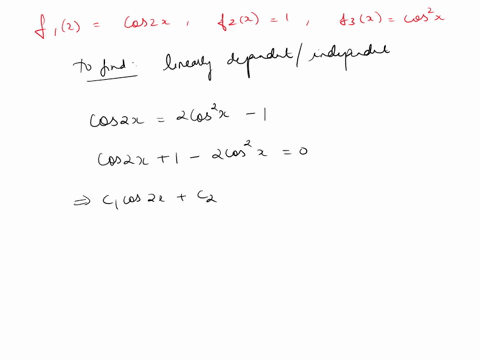 f₁(2) = cos2x , f₂(x) = 1 , f₃(x) = cos²x
To find: linearly dependent / independent
cos2x = 2cos²x - 1
cos2x + 1 - 2cos²x = 0
⇒ c₁cos2x + c₂